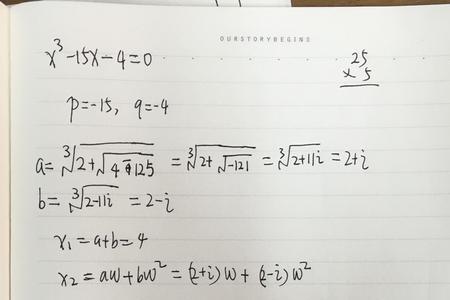 OURSTORYBEGINS
x³-15x-4=0
25
x 5
p=-15, q=-4
a=∛(2+√(4-125)) = ∛(2+√(-121)) = ∛(2+11i) = 2+i
b= ∛(2-11i) = 2-i
x₁ = a+b = 4
x₂ = aw+bw² = (2+i)w + (2-i)w²